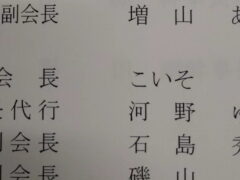 副会長 増山 あ
会長 こいそ
代行 河野
会長 石島
会長 磯山